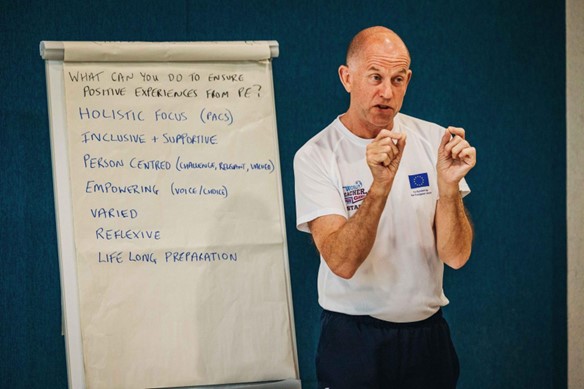 WHAT CAN YOU DO TO ENSURE
POSITIVE EXPERIENCES FROM PE?
HOLISTIC FOCUS (PACS)
INCLUSIVE + SUPPORTIVE
PERSON CENTRED (CHALLENGE, RELEVANT, VARIED)
EMPOWERING (VOICE/CHOICE)
VARIED
REFLEXIVE
LIFE LONG PREPARATION